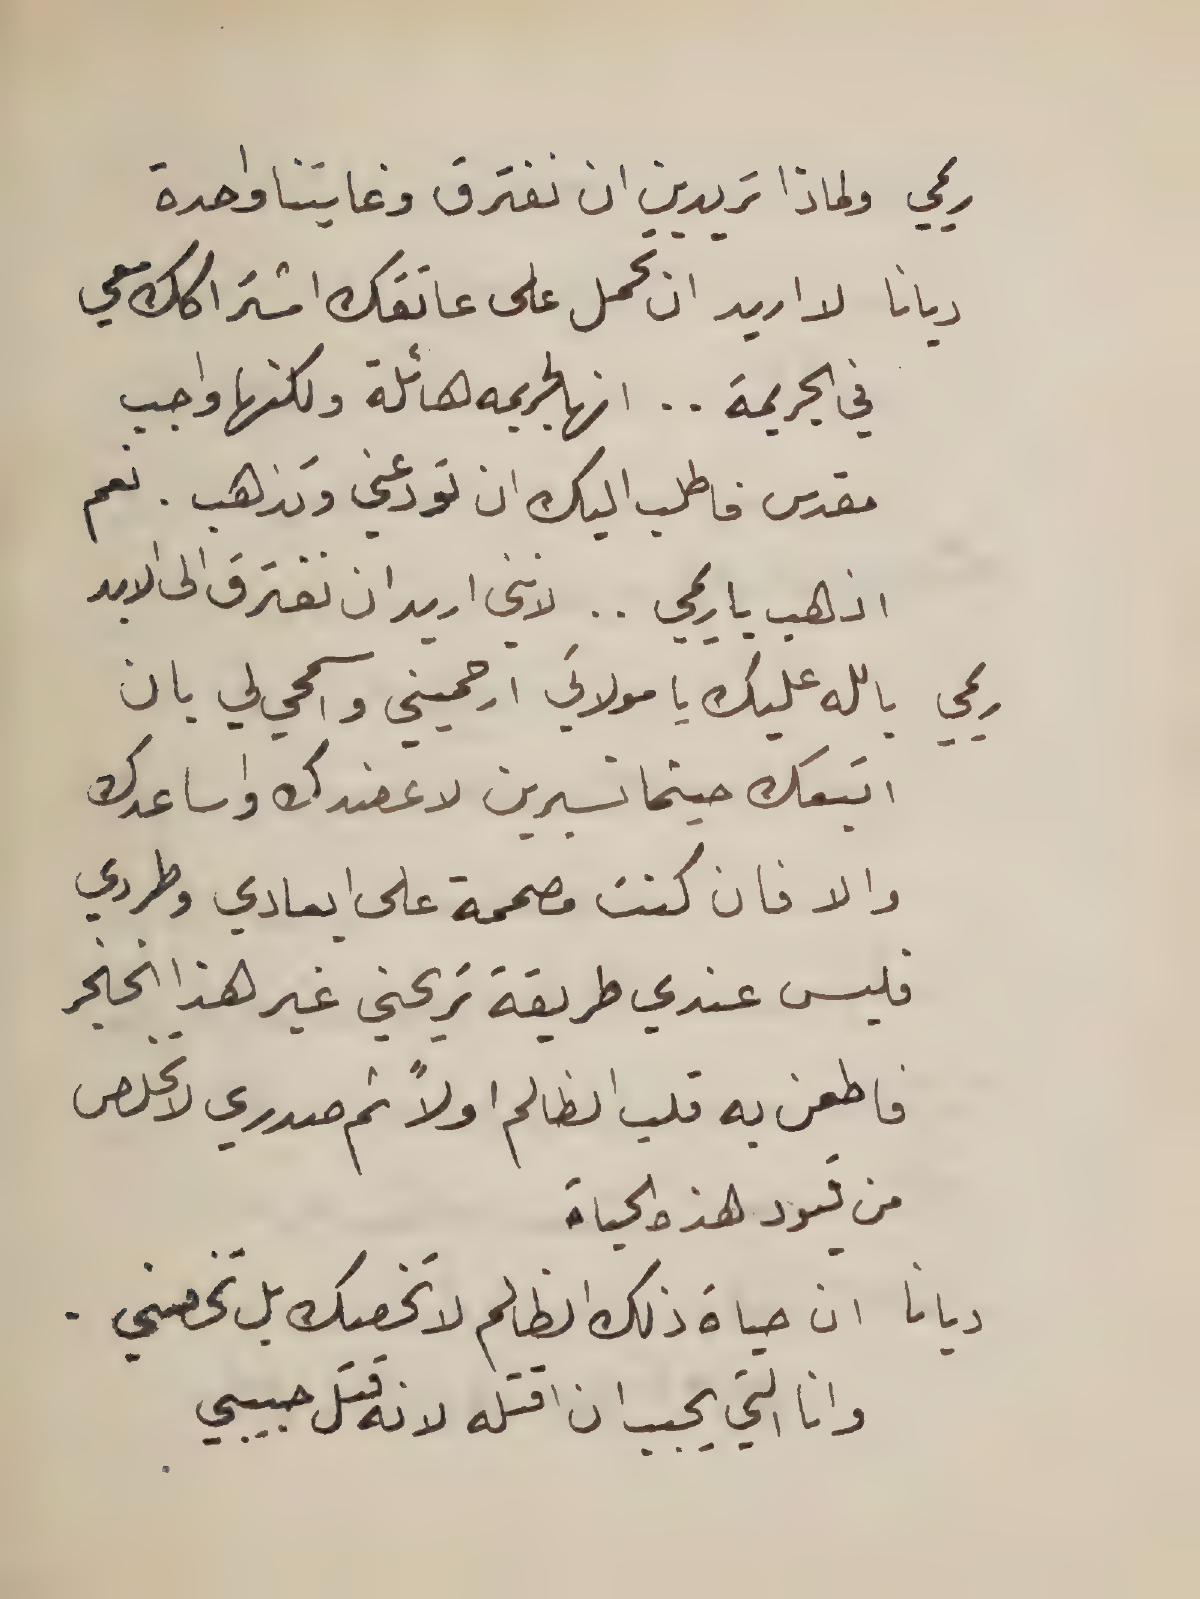 ريمي ولماذا تريدين ان نفترق وغايتنا واحدة
ديانا لا اريد ان تحمل على عاتقك اشتراكك معي
في الجريمة .. انها لجريمه هائلة ولكنها واجب
مقدس فاطلب اليك ان تودعني وتذهب . نعم
اذهب يا ريمي .. لانني اريد ان نفترق الى الابد
ريمي بالله عليك يا مولاتي ارحميني واسمحي لي بان
اتبعك حيثما تسيرين لاعضدك واساعدك
والا فان كنت مصممة على ابعادي وطردي
فليس عندي طريقة تريحني غير هذا الخنجر
فاطعن به قلب الظالم اولاً ثم صدري لاتخلص
من قيود هذه الحياة
ديانا ان حياة ذلك الظالم لا تخصك بل تخصني .
وانا التي يجب ان اقتله لانه قتل حبيبي